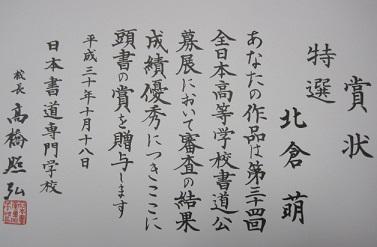 賞状
特選
北倉萌
あなたの作品は第三十四回
全日本高等学校書道公
募展において審査の結果
成績優秀につきここに
頭書の賞を贈与します
平成三十年十月十八日
日本書道専門学校
校長 髙橋照弘